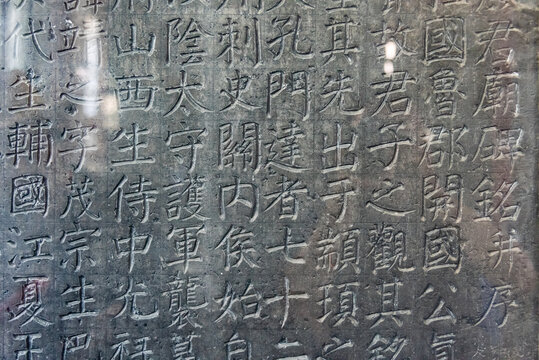 君廟碑銘并序
國魯郡開國公真
故君子之觀其銘
其先出于顓頊之
孔門達者七十二
刺史關內侯始自
陰大守護軍襲葛
山西生侍中光祿
靖之字茂宗生巴
代生輔國江夏王